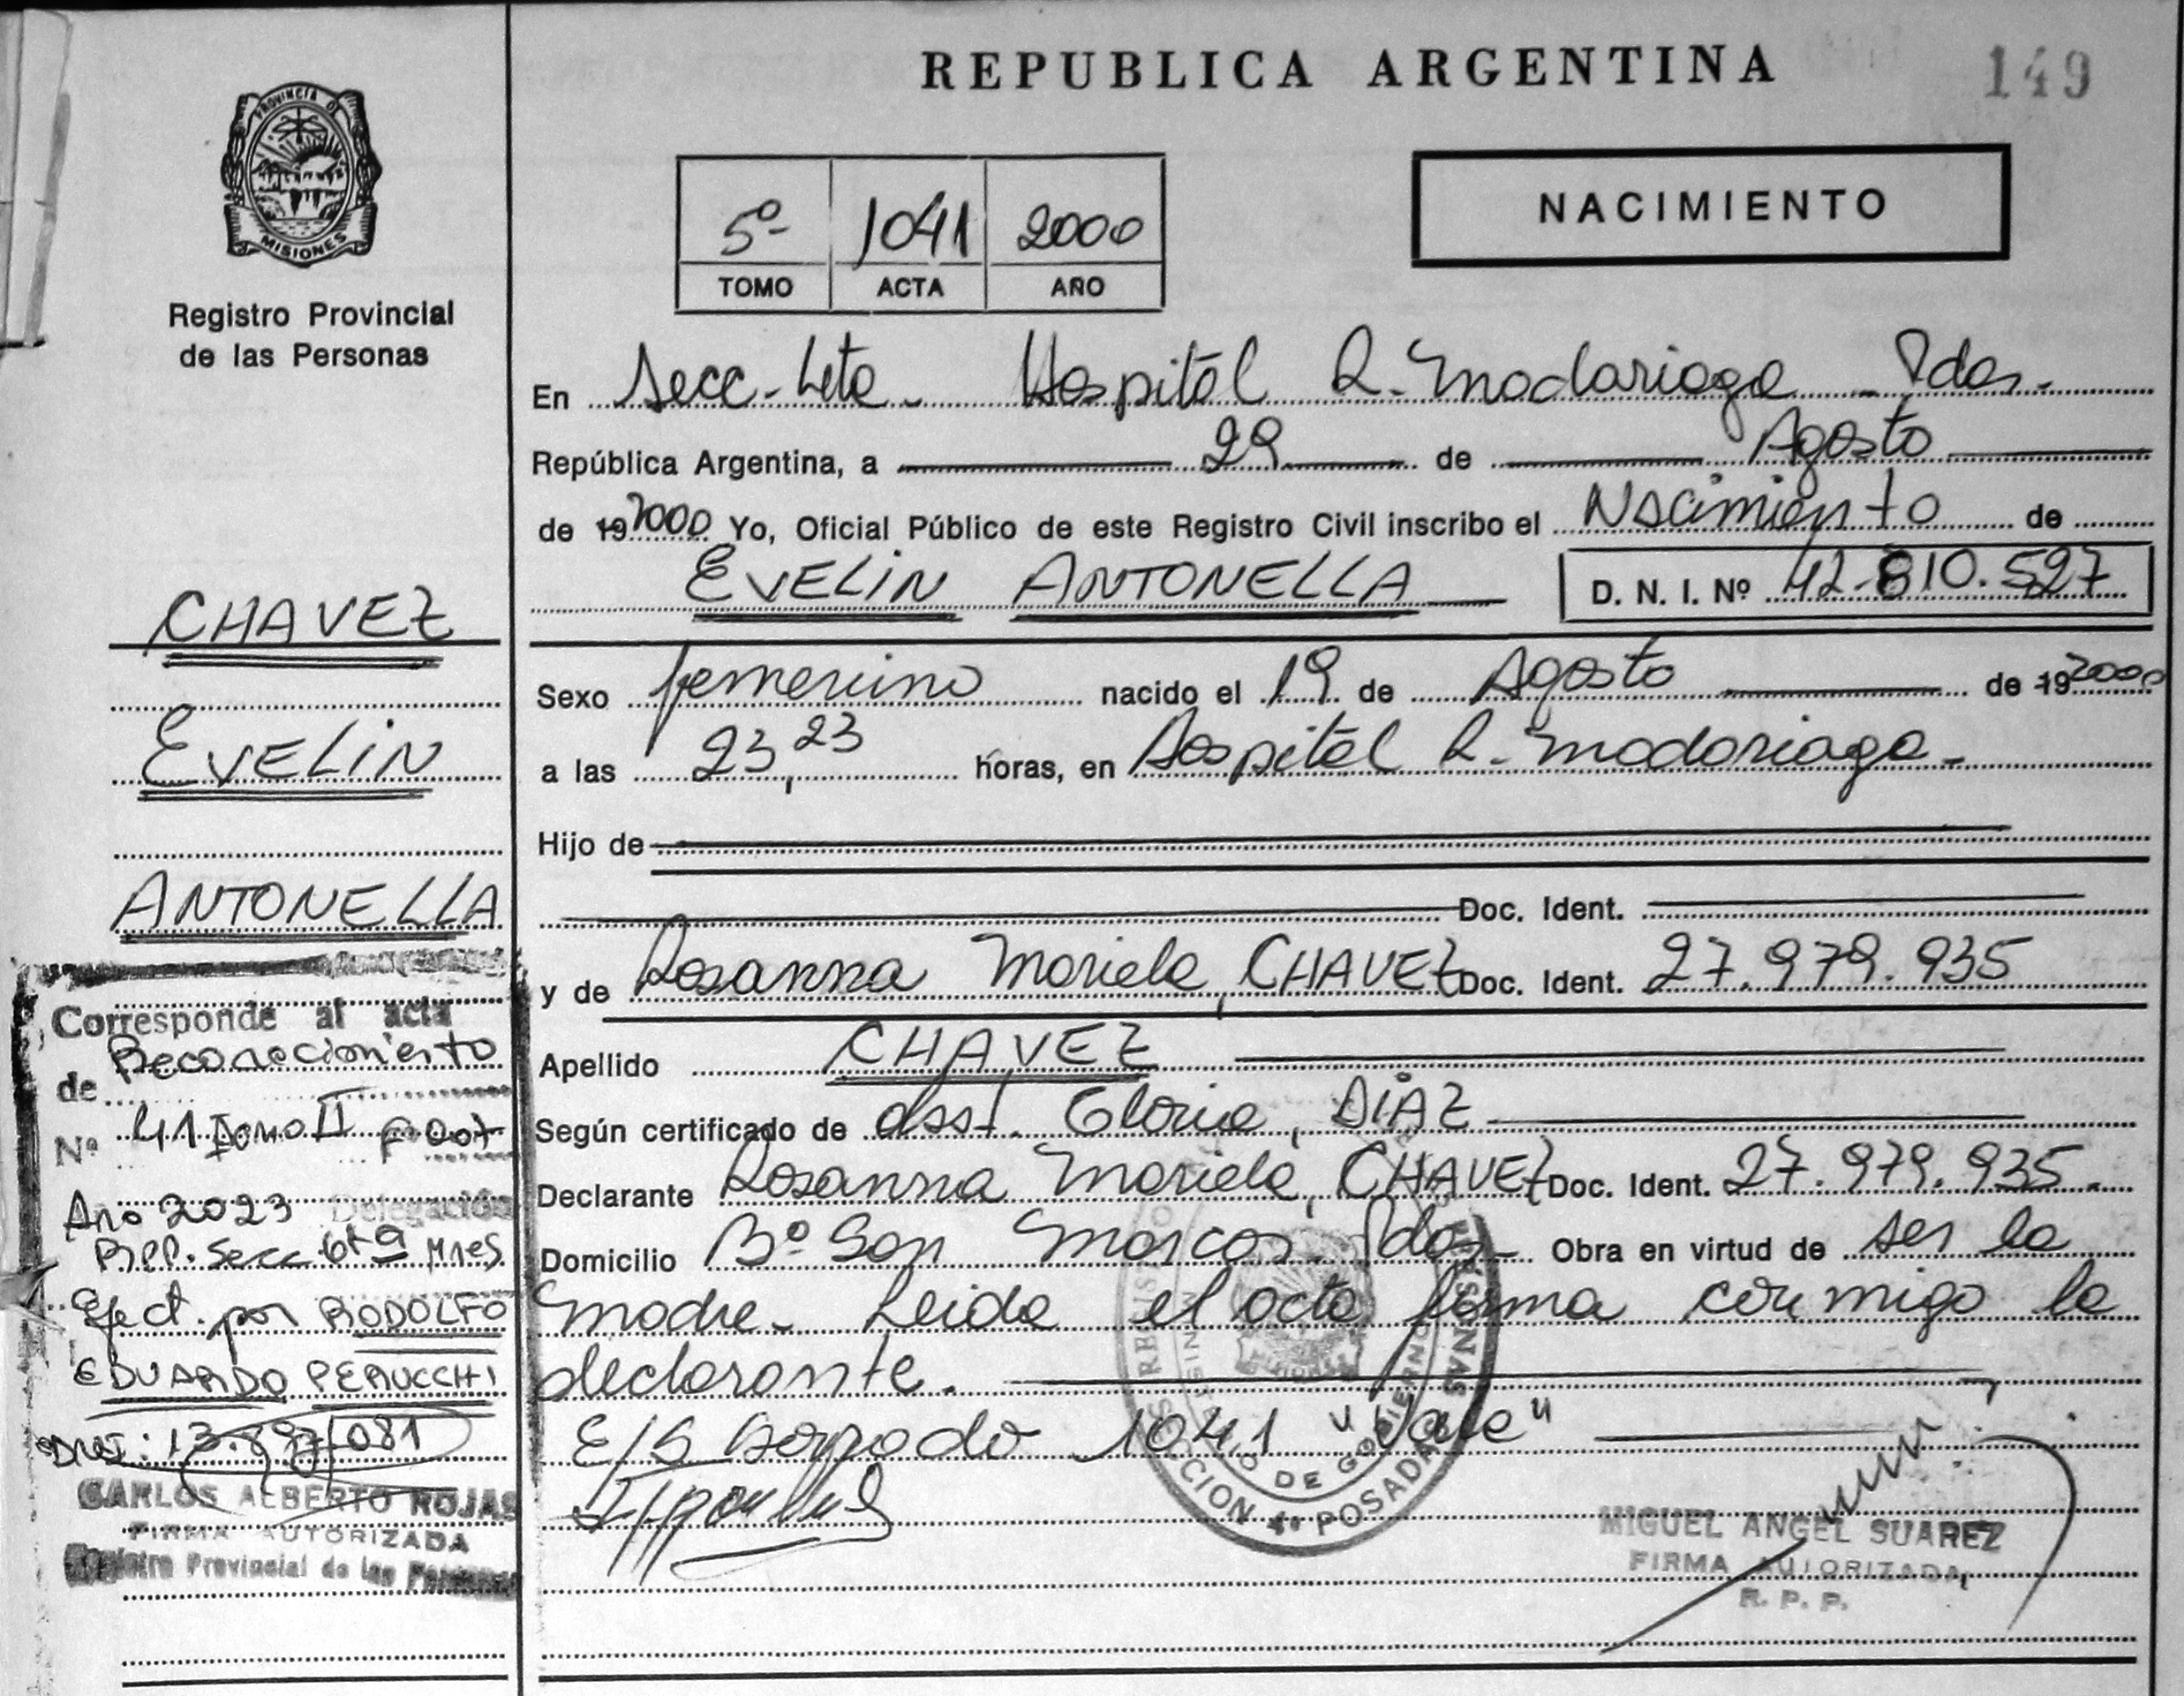 REPUBLICA ARGENTINA
149
PROVINCIA DE
MISIONES
Registro Provincial
de las Personas
5º 1041 2000
TOMO ACTA AÑO
NACIMIENTO
En Secc. 4ta. Hospital R. Madariaga - Pdas.
República Argentina, a 29 de Agosto
de 19 2000 Yo, Oficial Público de este Registro Civil inscribo el Nacimiento de
EVELIN ANTONELLA D. N. I. Nº 42.810.527
Sexo femenino nacido el 19 de Agosto de 19 2000
a las 23,23 horas, en Hospital R. Madariaga.
Hijo de
Doc. Ident.
y de Rosanna Mariela, CHAVEZ Doc. Ident. 27.979.935
Apellido CHAVEZ
Según certificado de Asst. Gloria, DIAZ
Declarante Rosanna Mariela, CHAVEZ Doc. Ident. 27.979.935.
Domicilio Bº San Marcos. Pdas. Obra en virtud de ser la
madre. Leida el acta firma conmigo la
declarante.
E/S Borrado 1041 "Vale"
MIGUEL ANGEL SUAREZ
FIRMA AUTORIZADA
R. P. P.
CHAVEZ
EVELIN
ANTONELLA
Corresponde al acta
de Reconocimiento
Nº 41 Tomo II Fº 007
Año 2023 Delegación
RPP. Secc 6ta Mnes
Efect. por RODOLFO
EDUARDO PERUCCHI
DNI: 13. 081
CARLOS ALBERTO ROJAS
FIRMA AUTORIZADA
Registro Provincial de las Personas
SECCION 4º POSADAS
DE GOBIERNO